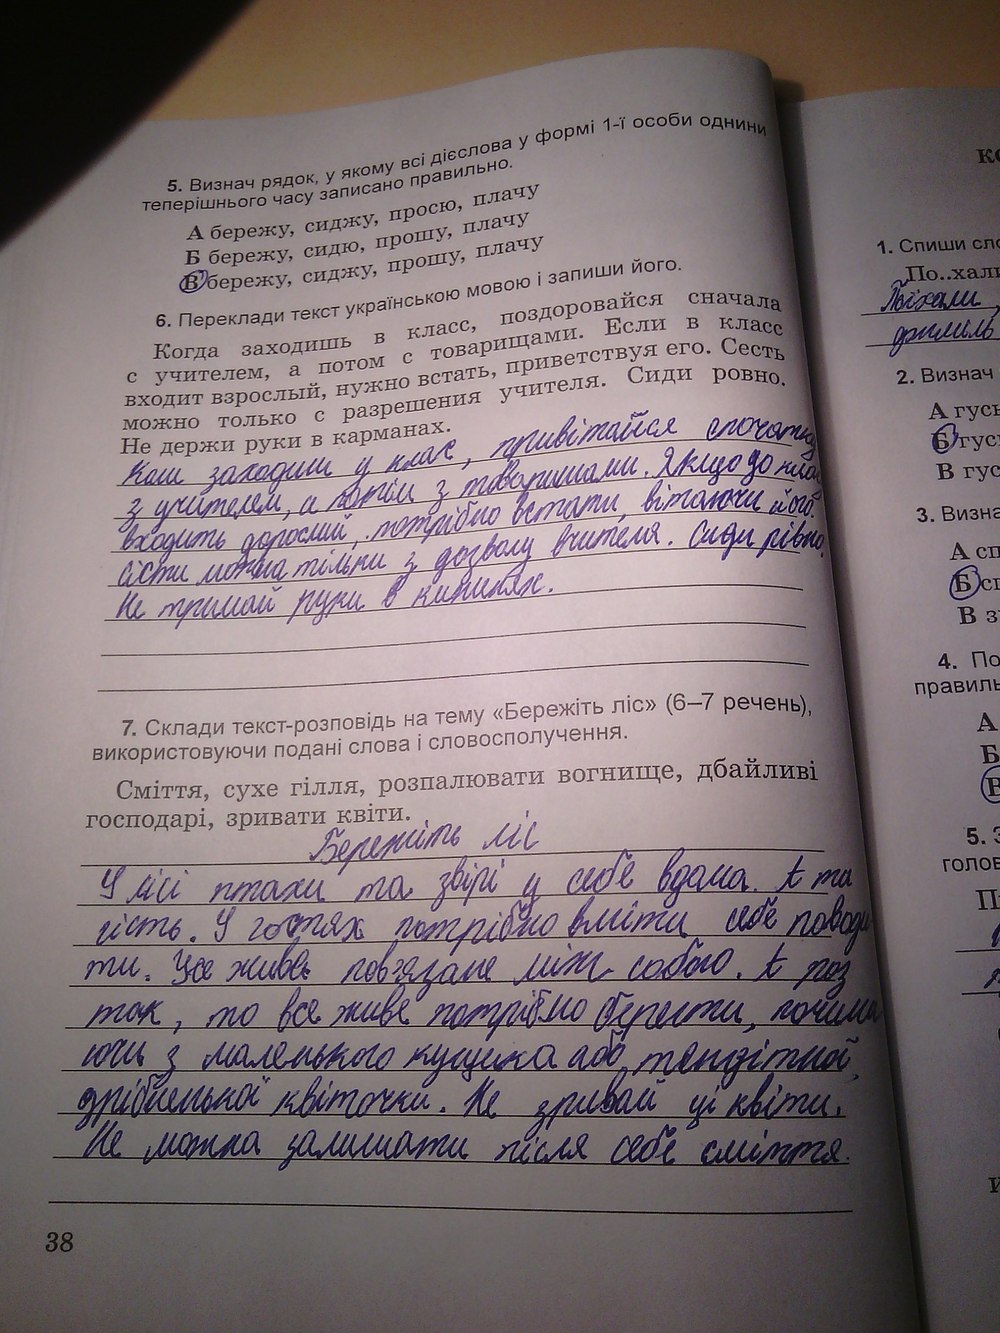 5. Визнач рядок, у якому всі дієслова у формі 1-ї особи однини
теперішнього часу записано правильно.
А бережу, сиджу, просю, плачу
Б бережу, сидю, прошу, плачу
В бережу, сиджу, прошу, плачу
6. Переклади текст українською мовою і запиши його.
Когда заходишь в класс, поздоровайся сначала
с учителем, а потом с товарищами. Если в класс
входит взрослый, нужно встать, приветствуя его. Сесть
можно только с разрешения учителя. Сиди ровно.
Не держи руки в карманах.
Коли заходиш у клас, привітайся спочатку
з учителем, а потім з товаришами. Якщо до клас
входить дорослий, потрібно встати, вітаючи його.
сісти можна тільки з дозволу вчителя. Сиди рівно.
Не тримай руки в кишенях.
7. Склади текст-розповідь на тему «Бережіть ліс» (6–7 речень),
використовуючи подані слова і словосполучення.
Сміття, сухе гілля, розпалювати вогнище, дбайливі
господарі, зривати квіти.
Бережіть ліс
У лісі птахи та звірі у себе вдома. А ти
гість. У гостях потрібно вміти себе поводи
ти. Усе живе повʼязане між собою. А раз
так, то все живе потрібно берегти, почина
ючи з маленького кущика або тендітної,
дрібненької квіточки. Не зривай ці квіти.
Не можна залишати після себе сміття.
38
1. Спиши сло
По..хали
Поїхали,
джміль
2. Визнач
А гусь
Б гус
В гус
3. Визна
А сп
Б сп
В з
4. По
правиль
А
Б
В
5. З
голов
П